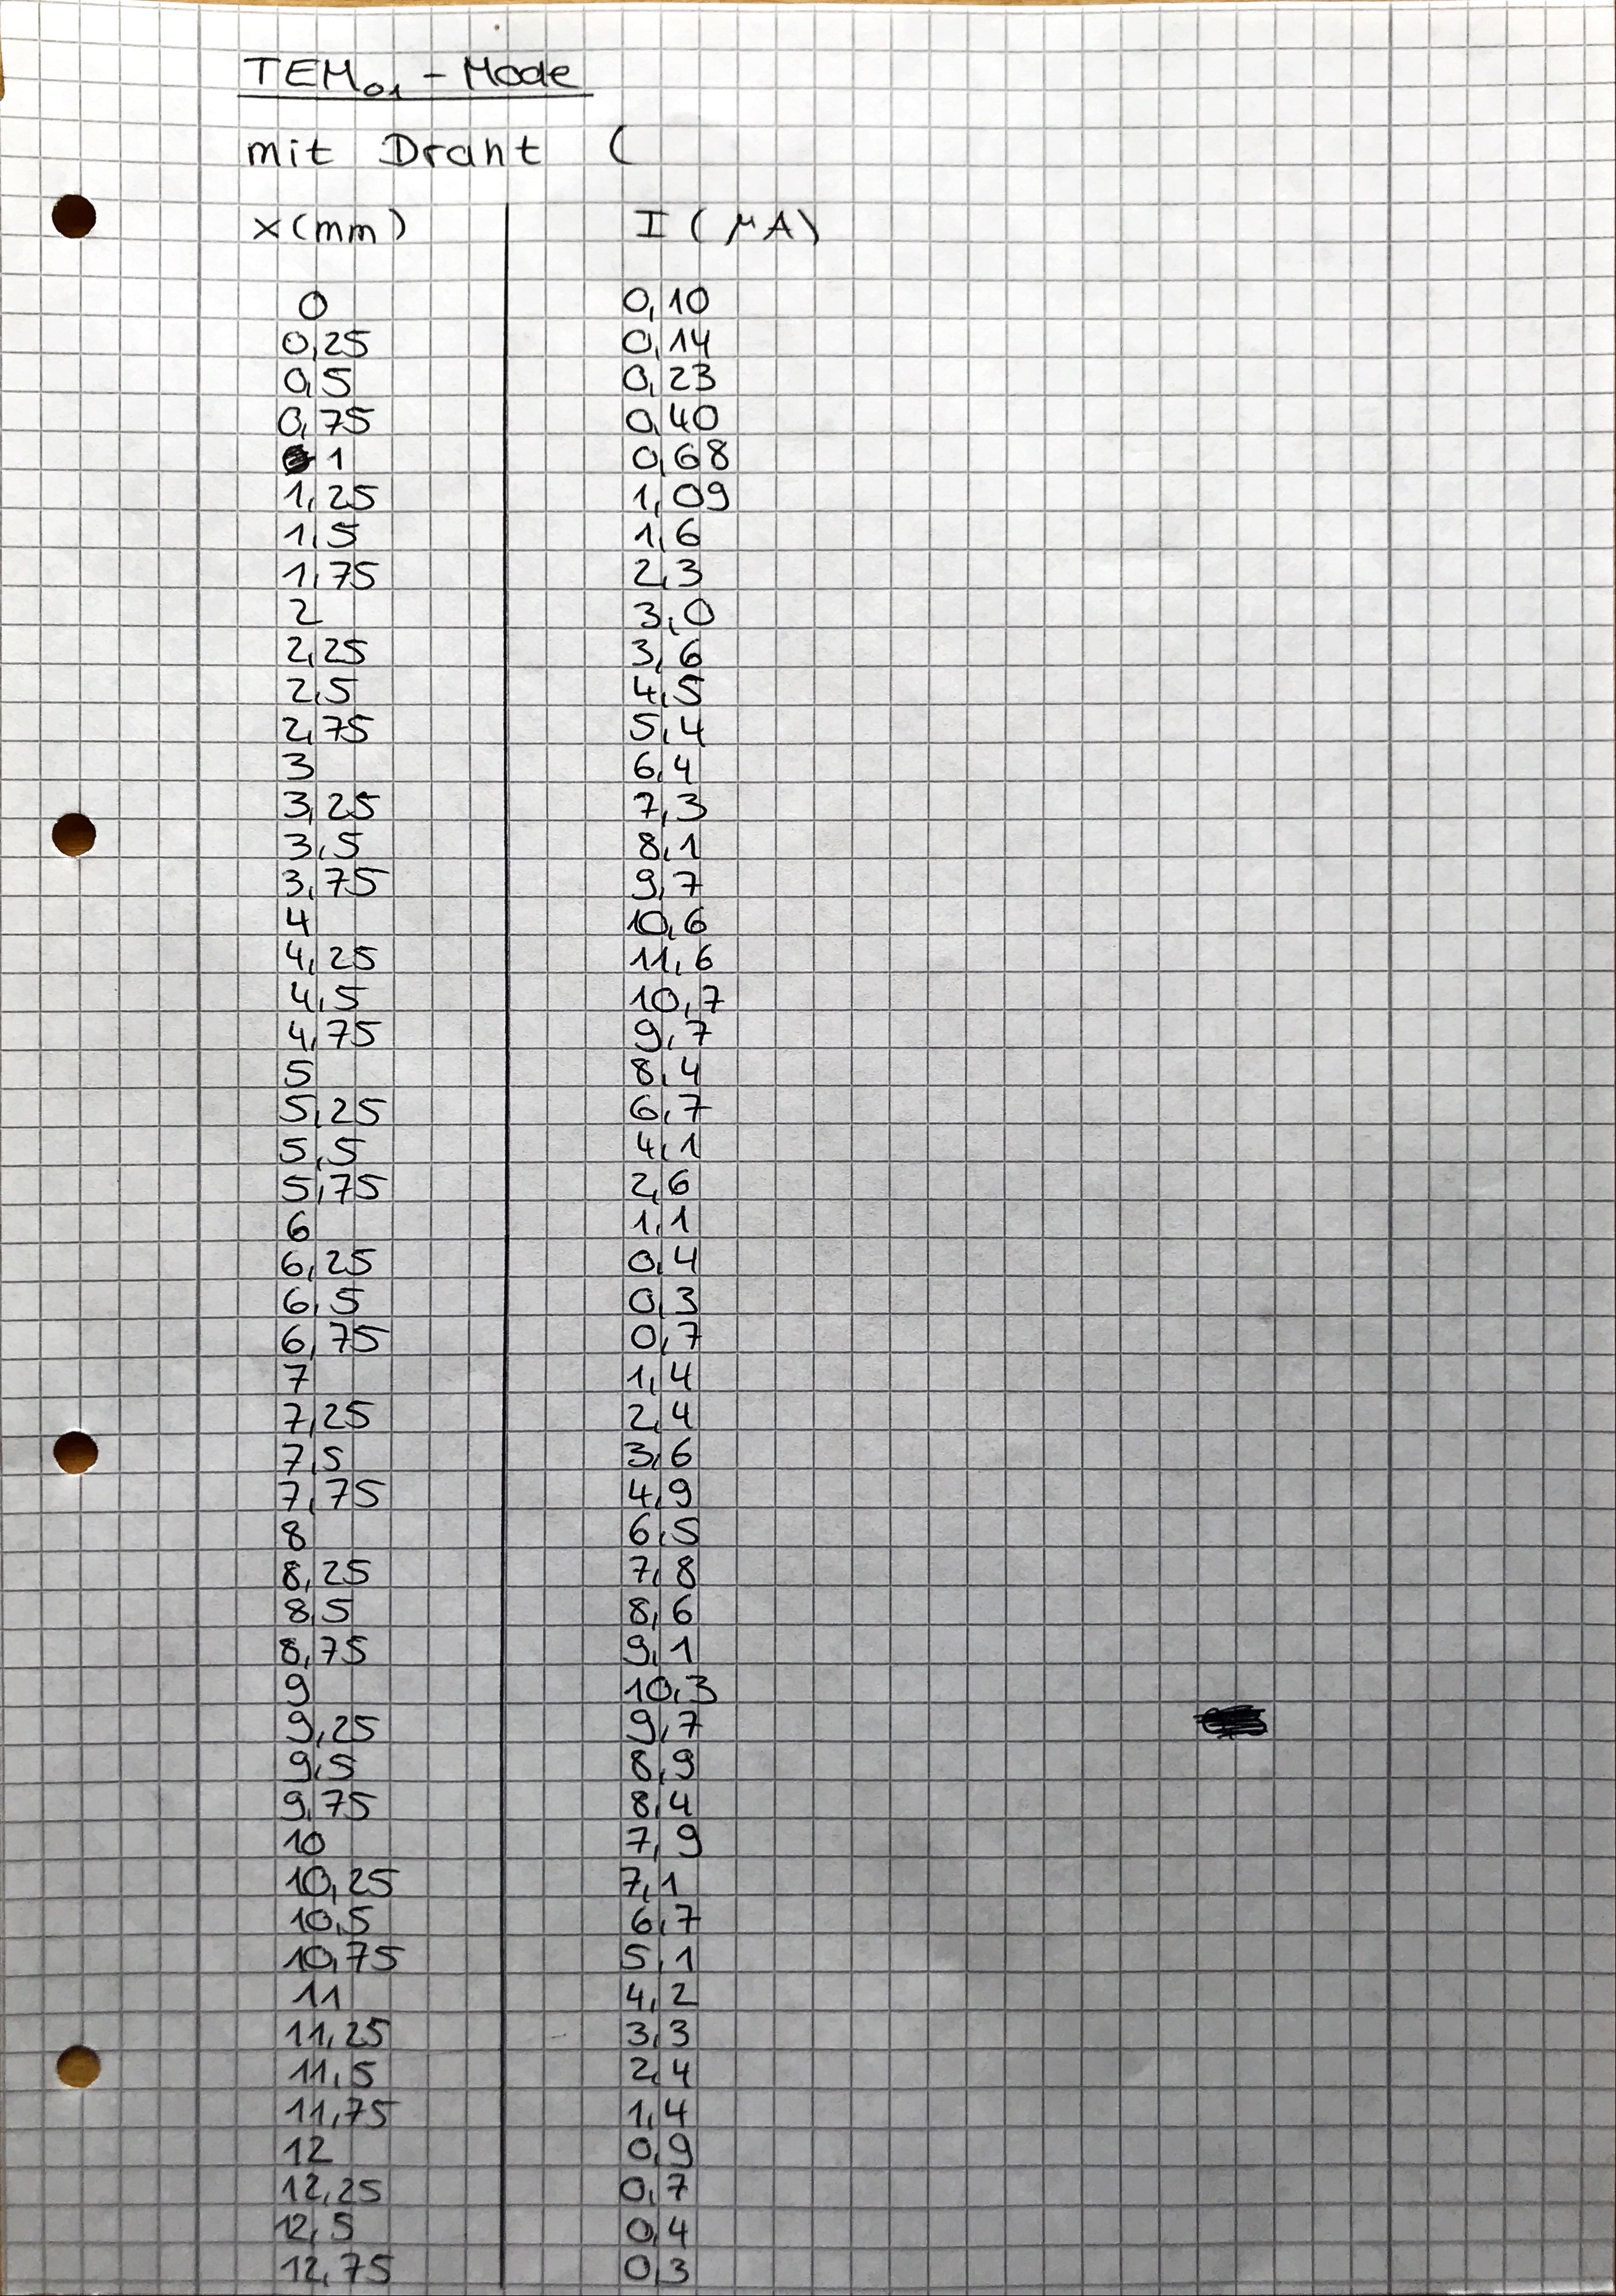 TEM₀₁ - Mode
mit Draht (
x (mm) I (µA)
0 0,10
0,25 0,14
0,5 0,23
0,75 0,40
1 0,68
1,25 1,09
1,5 1,6
1,75 2,3
2 3,0
2,25 3,6
2,5 4,5
2,75 5,4
3 6,4
3,25 7,3
3,5 8,1
3,75 9,7
4 10,6
4,25 11,6
4,5 10,7
4,75 9,7
5 8,4
5,25 6,7
5,5 4,1
5,75 2,6
6 1,1
6,25 0,4
6,5 0,3
6,75 0,7
7 1,4
7,25 2,4
7,5 3,6
7,75 4,9
8 6,5
8,25 7,8
8,5 8,6
8,75 9,1
9 10,3
9,25 9,7
9,5 8,9
9,75 8,4
10 7,9
10,25 7,1
10,5 6,7
10,75 5,1
11 4,2
11,25 3,3
11,5 2,4
11,75 1,4
12 0,9
12,25 0,7
12,5 0,4
12,75 0,3